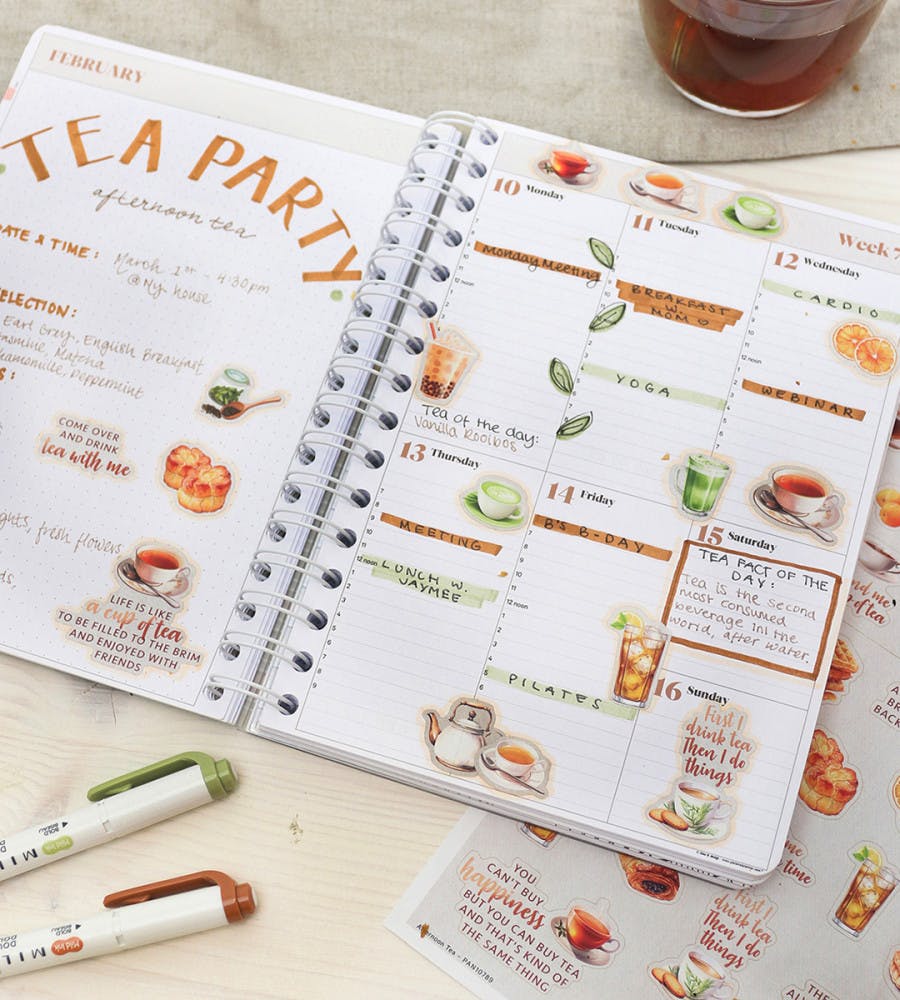 FEBRUARY
TEA PARTY
afternoon tea
DATE & TIME:
March 1st - 4:30pm
@ My house
SELECTION:
Earl Grey, English Breakfast
Jasmine, Matcha
Chamomile, Peppermint
COME OVER
AND DRINK
tea with me
fresh flowers
LIFE IS LIKE
a cup of tea
TO BE FILLED TO THE BRIM
AND ENJOYED WITH
FRIENDS
Week 7
10 Monday
Monday Meeting
12 noon
Tea of the day:
Vanilla Rooibos
11 Tuesday
BREAKFAST
W.
MOM
YOGA
12 Wednesday
CARDIO
12 noon
WEBINAR
13 Thursday
MEETING
12 noon
LUNCH W.
JAYMEE
14 Friday
B'S B-DAY
12 noon
PILATES
15 Saturday
TEA FACT OF THE
DAY:
Tea is the second
most consumed
beverage in the
world, after water.
16 Sunday
First I
drink tea
Then I do
things
YOU
CAN'T BUY
happiness
BUT YOU CAN BUY TEA
AND THAT'S KIND OF
THE SAME THING
Afternoon Tea – PAN10789
First I
drink tea
Then I do
things
MILD
BOLD
MILD
BOLD